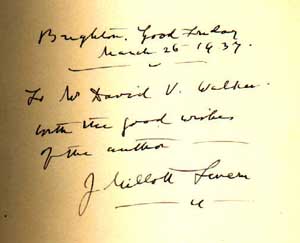 Brighton, Good Friday
March 26 1937.
To Mr David V. Walker
with the good wishes
of the author
J Millott Severn